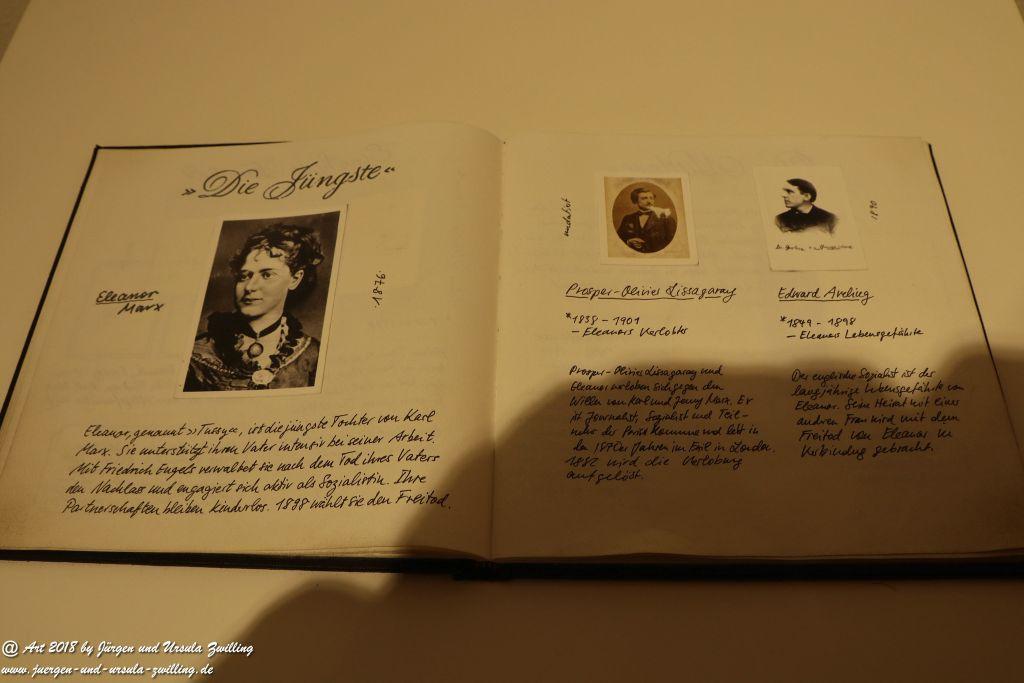 »Die Jüngste«
Eleanor
Marx
1876.
Eleanor, genannt »Tussy«, ist die jüngste Tochter von Karl
Marx. Sie unterstützt ihren Vater intensiv bei seiner Arbeit.
Mit Friedrich Engels verwaltet sie nach dem Tod ihres Vaters
den Nachlass und engagiert sich aktiv als Sozialistin. Ihre
Partnerschaften bleiben kinderlos. 1898 wählt sie den Freitod.
undatiert
Prosper-Olivier Lissagaray
*1838 – 1901
– Eleanors Verlobter
Prosper-Olivier Lissagaray und
Eleanor verloben sich gegen den
Willen von Karl und Jenny Marx. Er
ist Journalist, Sozialist und Teil-
nehmer der Pariser Kommune und lebt in
den 1870er Jahren im Exil in London.
1882 wird die Verlobung
aufgelöst.
1890
Edward Aveling
*1849 – 1898
– Eleanors Lebensgefährte
Der englische Sozialist ist der
langjährige Lebensgefährte von
Eleanor. Seine Heirat mit einer
anderen Frau wird mit dem
Freitod von Eleanor in
Verbindung gebracht.
@ Art 2018 by Jürgen und Ursula Zwilling
www.juergen-und-ursula-zwilling.de